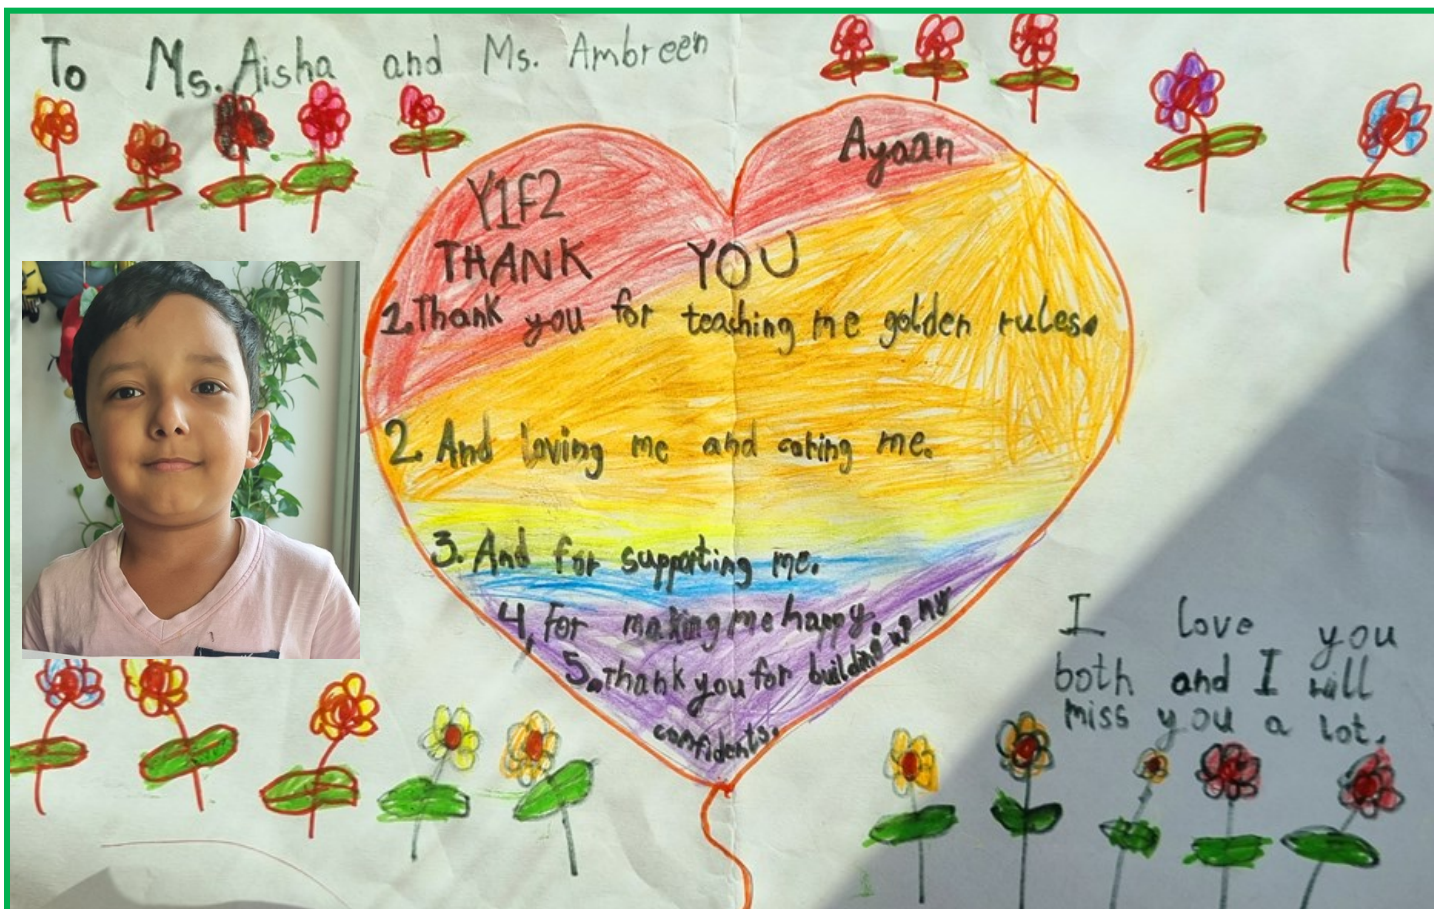 To Ms. Aisha and Ms. Ambreen
Ayaan
Y1F2
THANK YOU
1. Thank you for teaching me golden rules.
2. And loving me and caring me.
3. And for supporting me.
4, For making me happy.
5. Thank you for building up my
confidents.
I love you
both and I will
miss you a lot.